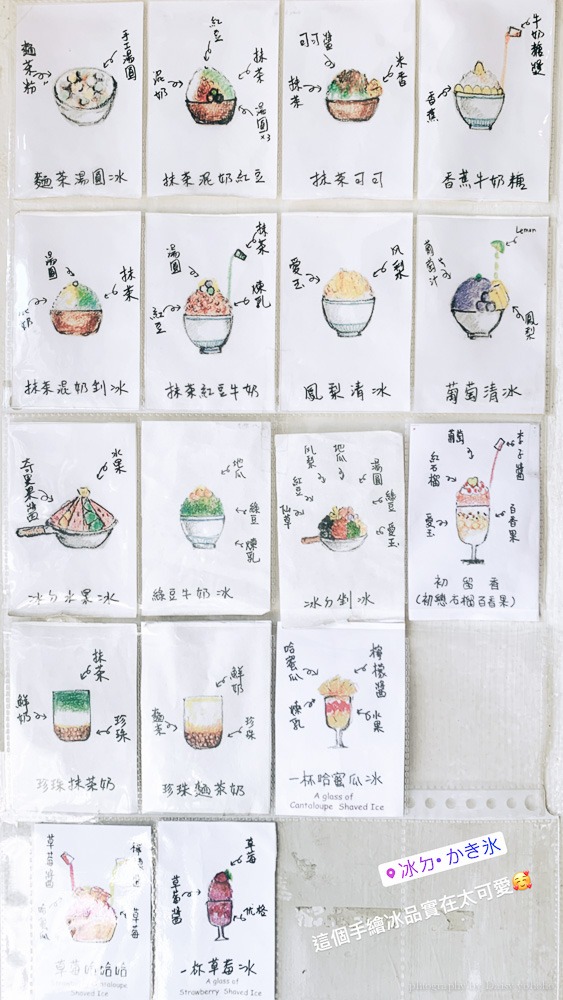 麵茶粉
手工湯圓
麵茶湯圓冰
紅豆
抹茶
混奶
湯圓x3
抹茶混奶紅豆
可可醬
抹茶
米香
抹茶可可
牛奶糖醬
香蕉
香蕉牛奶糖
湯圓
抹茶
奶
抹茶混奶剉冰
抹茶
湯圓
煉乳
紅豆
抹茶紅豆牛奶
愛玉
鳳梨
鳳梨清冰
Lemon
葡萄汁
鳳梨
葡萄清冰
水果
奇異果醬
冰ㄉ水果冰
地瓜
綠豆
煉乳
綠豆牛奶冰
鳳梨
地瓜
湯圓
紅豆
綠豆
仙草
愛玉
冰ㄉ剉冰
葡萄
李子醬
紅石榴
百香果
愛玉
初留香
(初戀石榴百香果)
抹茶
鮮奶
珍珠
珍珠抹茶奶
鮮奶
麵茶
珍珠
珍珠麵茶奶
哈蜜瓜
檸檬醬
煉乳
水果
一杯哈蜜瓜冰
A glass of
Cantaloupe Shaved Ice
草莓醬
草莓
草莓哈哈
草莓
草莓醬
優格
一杯草莓冰
A glass of
Strawberry Shaved Ice
冰ㄉ•かき氷
這個手繪冰品實在太可愛🥰